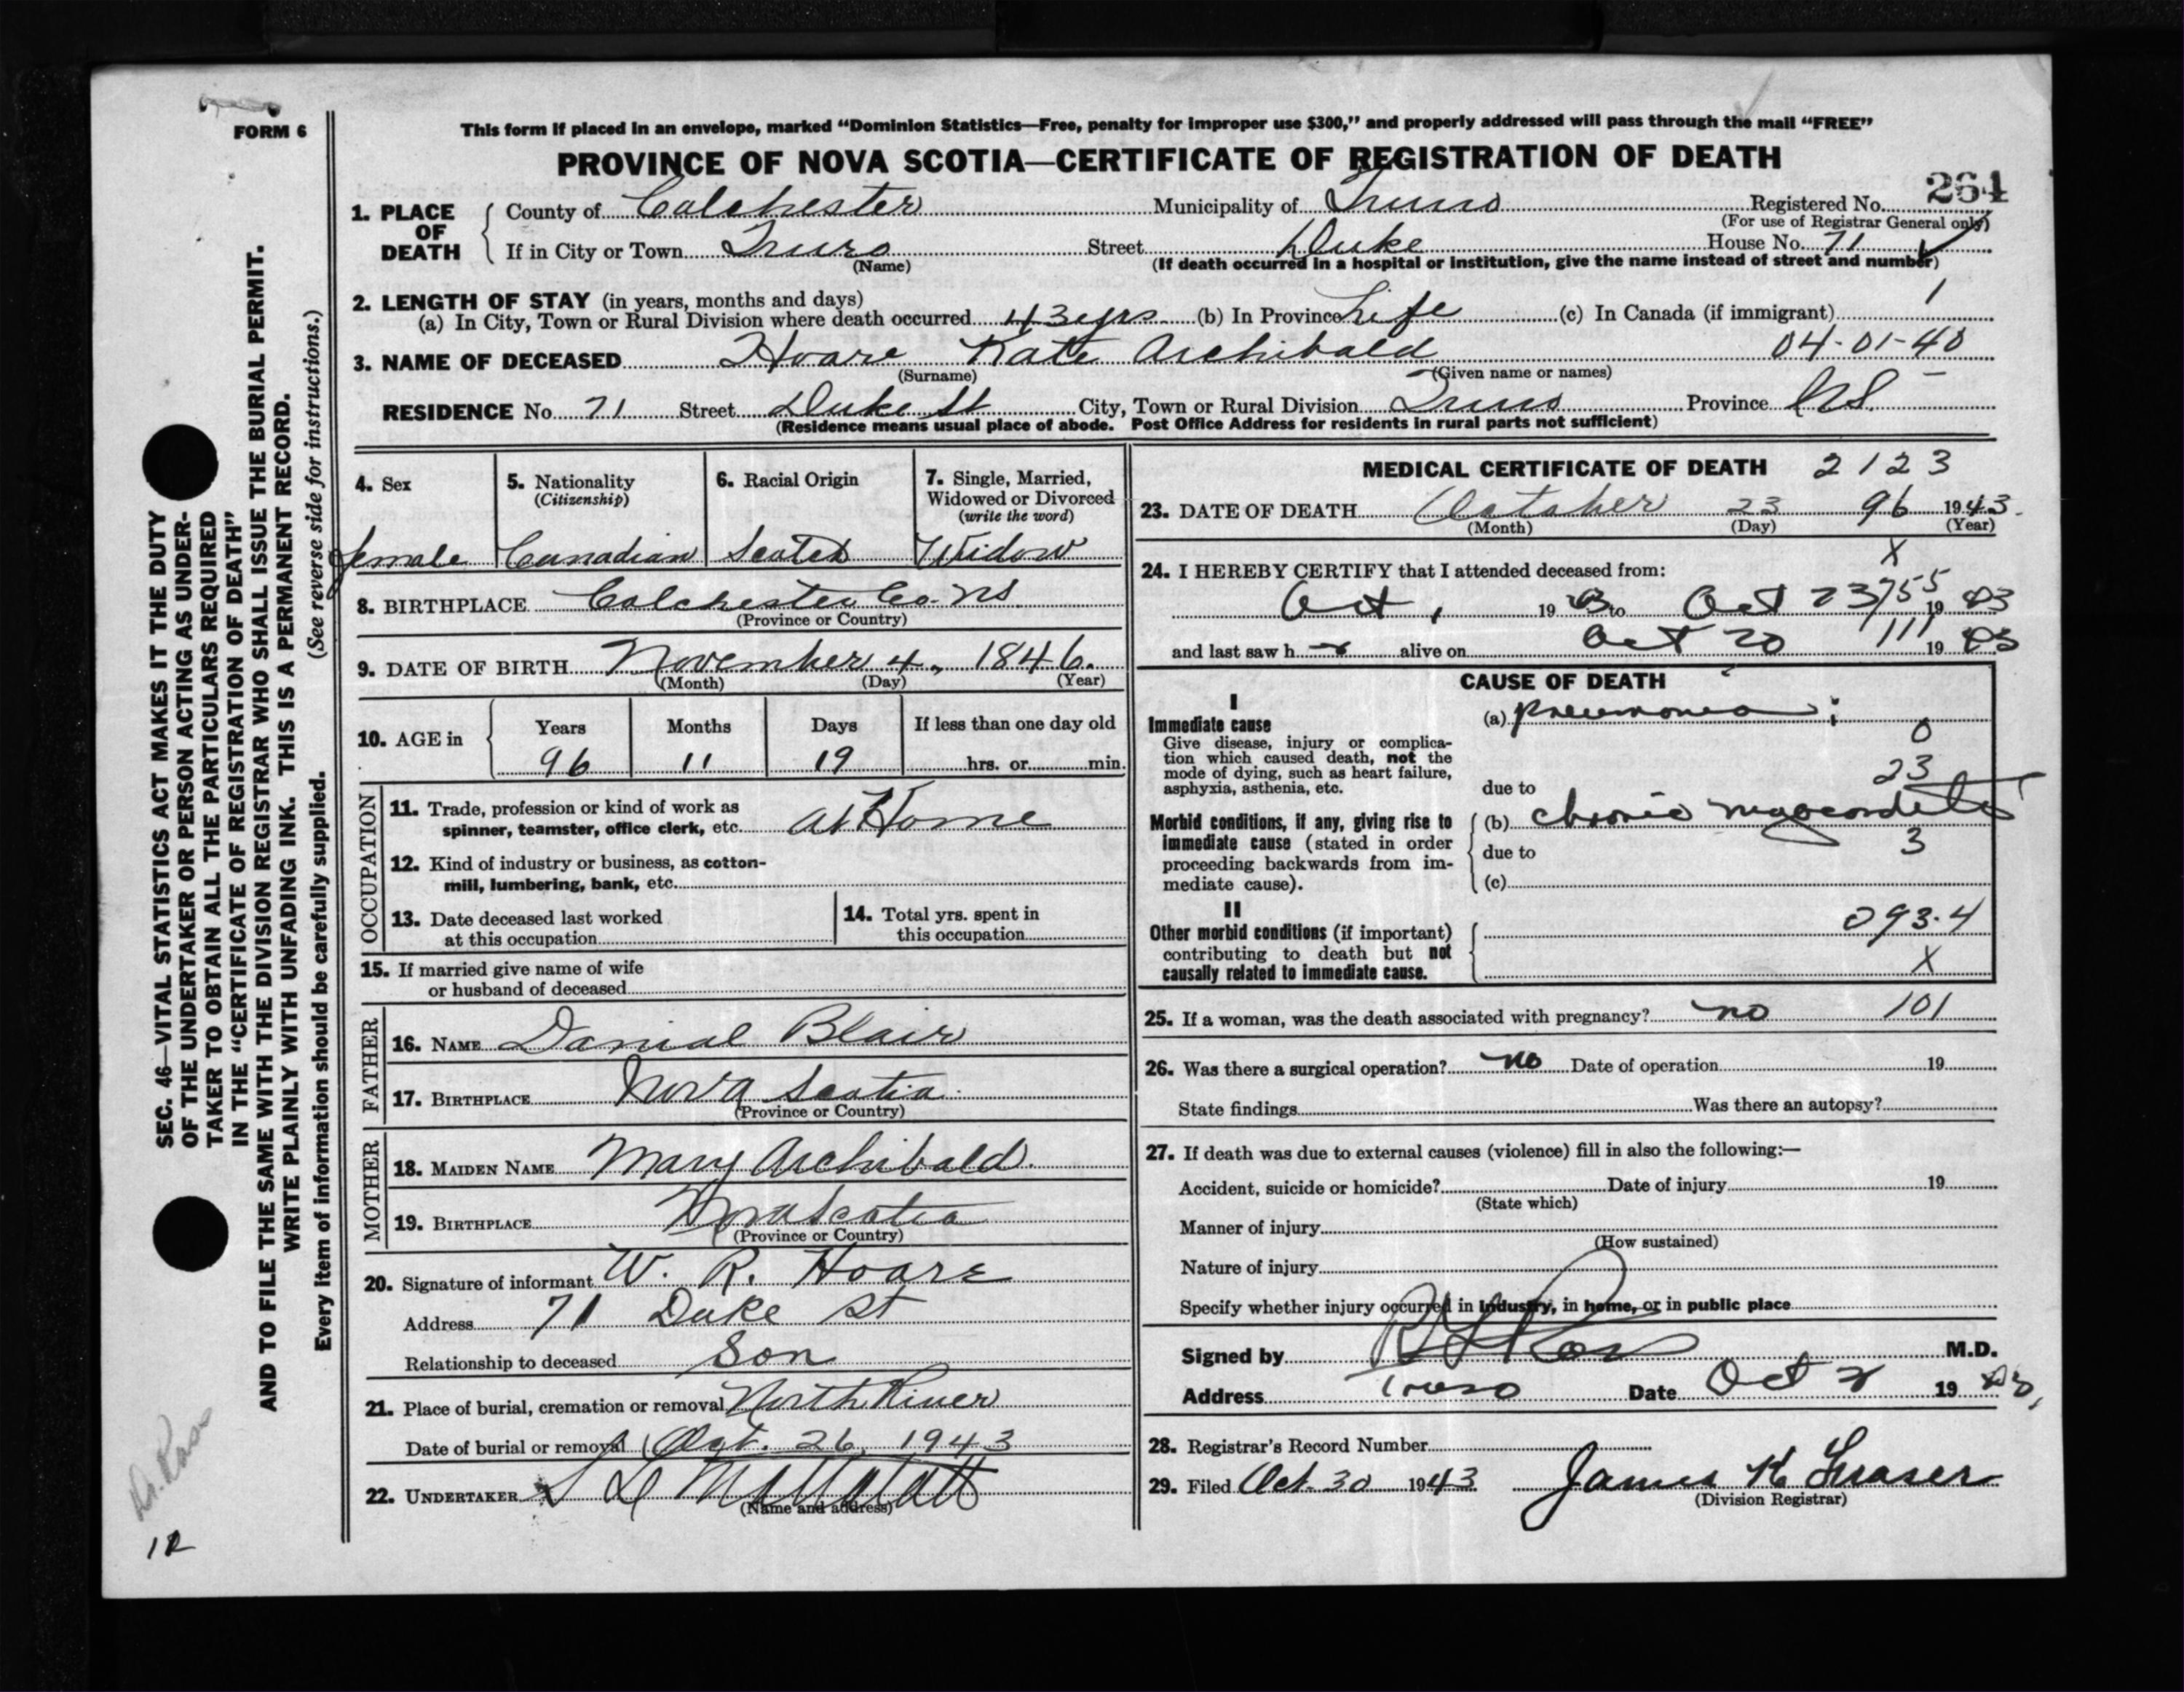 FORM 6
This form if placed in an envelope, marked “Dominion Statistics—Free, penalty for improper use $300,” and properly addressed will pass through the mail “FREE”
PROVINCE OF NOVA SCOTIA—CERTIFICATE OF REGISTRATION OF DEATH
264
1. PLACE OF DEATH
County of Colchester Municipality of Truro Registered No.
(For use of Registrar General only)
If in City or Town Truro Street Duke House No. 71
(Name) (If death occurred in a hospital or institution, give the name instead of street and number)
2. LENGTH OF STAY (in years, months and days)
(a) In City, Town or Rural Division where death occurred 43 yrs (b) In Province Life (c) In Canada (if immigrant) 1
04-01-40
3. NAME OF DECEASED Hoare Kate Archibald
(Surname) (Given name or names)
RESIDENCE No. 71 Street Duke St City, Town or Rural Division Truro Province N.S.
(Residence means usual place of abode. Post Office Address for residents in rural parts not sufficient)
4. Sex
female
5. Nationality
(Citizenship)
Canadian
6. Racial Origin
Scotch
7. Single, Married,
Widowed or Divorced
(write the word)
Widow
8. BIRTHPLACE Colchester Co. NS.
(Province or Country)
9. DATE OF BIRTH November 4, 1846.
(Month) (Day) (Year)
10. AGE in
Years Months Days If less than one day old
96 11 19 hrs. or min.
OCCUPATION
11. Trade, profession or kind of work as
spinner, teamster, office clerk, etc. at Home
12. Kind of industry or business, as cotton-
mill, lumbering, bank, etc.
13. Date deceased last worked
at this occupation
14. Total yrs. spent in
this occupation
15. If married give name of wife
or husband of deceased
FATHER
16. NAME Danial Blair
17. BIRTHPLACE Nova Scotia
(Province or Country)
MOTHER
18. MAIDEN NAME Mary Archibald.
19. BIRTHPLACE Nova Scotia
(Province or Country)
20. Signature of informant W. R. Hoare
Address 71 Duke St
Relationship to deceased Son
21. Place of burial, cremation or removal North River
Date of burial or removal Oct. 26, 1943
22. UNDERTAKER
(Name and address)
MEDICAL CERTIFICATE OF DEATH 2123
23. DATE OF DEATH October 23 96 1943.
(Month) (Day) (Year)
X
24. I HEREBY CERTIFY that I attended deceased from:
Oct, 1943 to Oct 23 1943
755
and last saw h r alive on Oct 20 1943
111
CAUSE OF DEATH
I
Immediate cause
Give disease, injury or complica-
tion which caused death, not the
mode of dying, such as heart failure,
asphyxia, asthenia, etc.
(a) pneumonia
0
23
due to
Morbid conditions, if any, giving rise to
immediate cause (stated in order
proceeding backwards from im-
mediate cause).
(b) chronic myocarditis
3
due to
(c)
II
Other morbid conditions (if important)
contributing to death but not
causally related to immediate cause.
093.4
X
25. If a woman, was the death associated with pregnancy? no 101
26. Was there a surgical operation? no Date of operation 19
State findings Was there an autopsy?
27. If death was due to external causes (violence) fill in also the following:—
Accident, suicide or homicide? Date of injury 19
(State which)
Manner of injury
(How sustained)
Nature of injury
Specify whether injury occurred in industry, in home, or in public place
Signed by Ross M.D.
Address Truro Date Oct 2 1943,
28. Registrar's Record Number
29. Filed Oct. 30 1943 James K Fraser
(Division Registrar)
SEC. 46—VITAL STATISTICS ACT MAKES IT THE DUTY
OF THE UNDERTAKER OR PERSON ACTING AS UNDER-
TAKER TO OBTAIN ALL THE PARTICULARS REQUIRED
IN THE “CERTIFICATE OF REGISTRATION OF DEATH”
AND TO FILE THE SAME WITH THE DIVISION REGISTRAR WHO SHALL ISSUE THE BURIAL PERMIT.
WRITE PLAINLY WITH UNFADING INK. THIS IS A PERMANENT RECORD.
Every item of information should be carefully supplied. (See reverse side for instructions.)
Dr. Ross
12